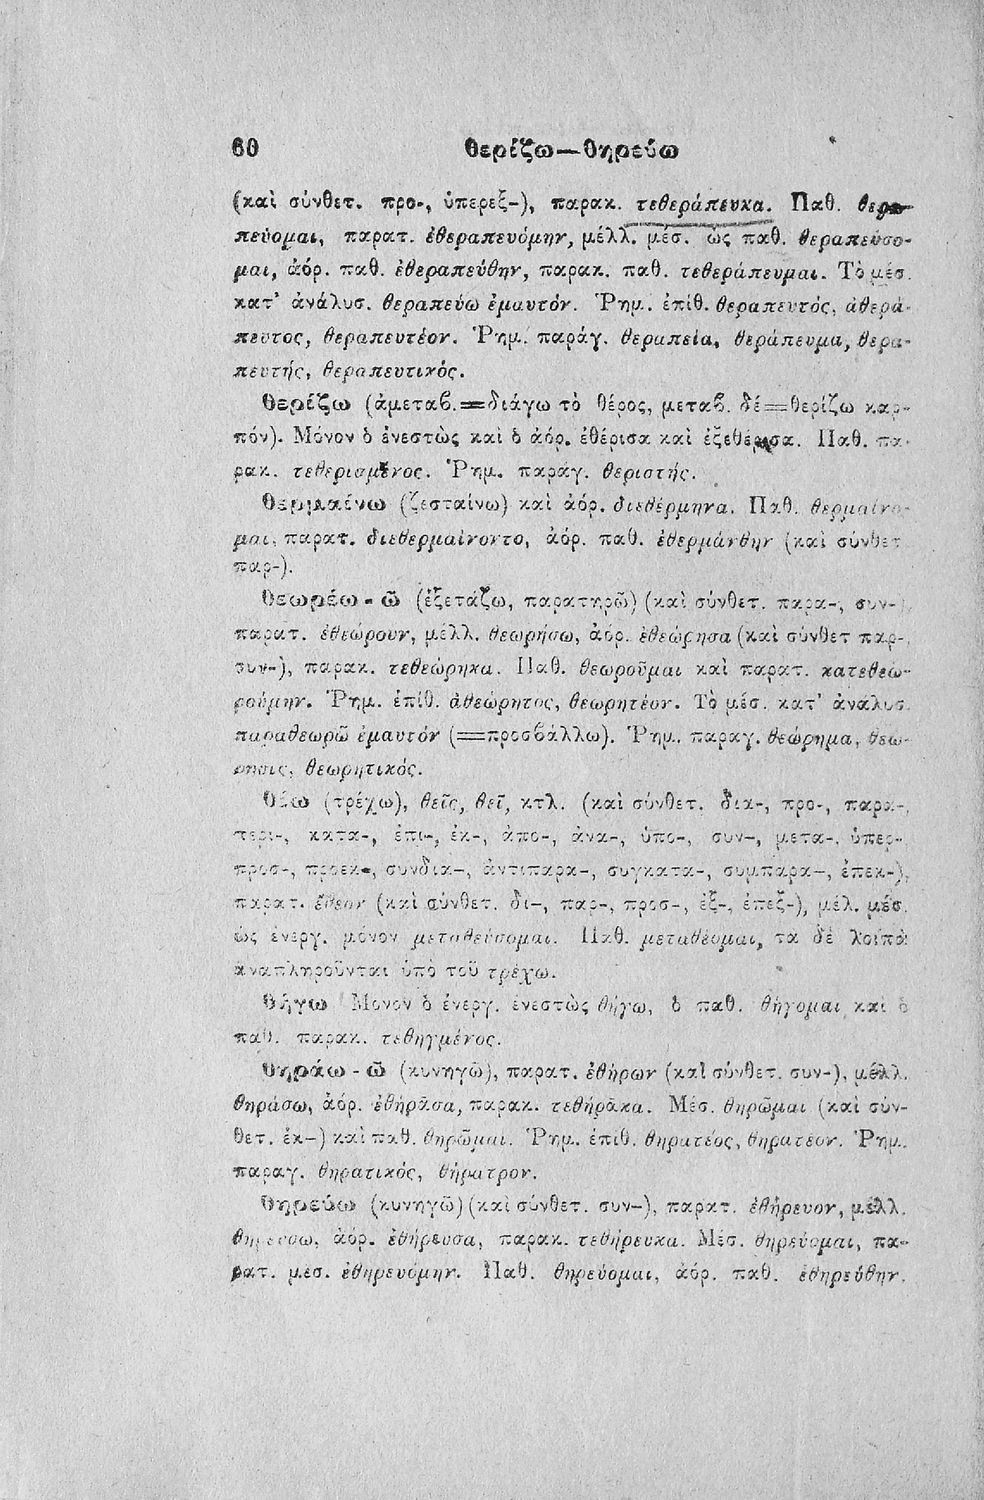 60 θερίζω—θηρεύω
(καὶ σύνθετ. προ-, ὑπερεξ-), παρακ. τεθεράπευκα. Παθ. θερα-
πεύομαι, παρατ. ἐθεραπευόμην, μέλλ. μέσ. ὡς παθ. θεραπεύσο-
μαι, ἀόρ. παθ. ἐθεραπεύθην, παρακ. παθ. τεθεράπευμαι. Τὸ μέσ.
κατ' ἀνάλυσ. θεραπεύω ἐμαυτόν. Ῥημ. ἐπίθ. θεραπευτός, ἀθερά-
πευτος, θεραπευτέον. Ῥημ. παράγ. θεραπεία, θεράπευμα, θερα-
πευτής, θεραπευτικός.
θερίζω (ἀμεταβ.=διάγω τὸ θέρος, μεταβ. δέ=θερίζω καρ-
πόν). Μόνον ὁ ἐνεστὼς καὶ ὁ ἀόρ. ἐθέρισα καὶ ἐξεθέρισα. Παθ. πα-
ρακ. τεθερισμένος. Ῥημ. παράγ. θεριστής.
θερμαίνω (ζεσταίνω) καὶ ἀόρ. διεθέρμηνα. Παθ. θερμαίνο-
μαι, παρατ. διεθερμαίνοντο, ἀόρ. παθ. ἐθερμάνθην (καὶ σύνθετ
παρ-).
θεωρέω-ῶ (ἐξετάζω, παρατηρῶ) (καὶ σύνθετ. παρα-, συν-),
παρατ. ἐθεώρουν, μέλλ. θεωρήσω, ἀόρ. ἐθεώρησα (καὶ σύνθετ παρ-,
συν-), παρακ. τεθεώρηκα. Παθ. θεωροῦμαι καὶ παρατ. κατεθεω-
ρούμην. Ῥημ. ἐπίθ. ἀθεώρητος, θεωρητέον. Τὸ μέσ. κατ' ἀνάλυσ.
παραθεωρῶ ἐμαυτόν (=προσβάλλω). Ῥημ. παραγ. θεώρημα, θεώ-
ρησις, θεωρητικός.
θέω (τρέχω), θεῖς, θεῖ, κτλ. (καὶ σύνθετ. δια-, προ-, παρα-,
περι-, κατα-, ἐπι-, ἐκ-, ἀπο-, ἀνα-, ὑπο-, συν-, μετα-, ὑπερ-
προσ-, προεκ-, συνδια-, ἀντιπαρα-, συγκατα-, συμπαρα-, ἐπεκ-),
παρατ. ἔθεον (καὶ σύνθετ. δι-, παρ-, προσ-, ἐξ-, ἐπεξ-), μέλ. μέσ.
ὡς ἐνεργ. μόνον μεταθεύσομαι. Παθ. μεταθέομαι, τα δὲ λοιπὰ
ἀναπληροῦνται ὑπὸ τοῦ τρέχω.
θήγω Μόνον ὁ ἐνεργ. ἐνεστὼς θήγω, ὁ παθ. θήγομαι καὶ ὁ
παθ. παρακ. τεθηγμένος.
θηράω-ῶ (κυνηγῶ), παρατ. ἐθήρων (καὶ σύνθετ. συν-), μέλλ.
θηράσω, ἀόρ. ἐθήρᾶσα, παρακ. τεθήρᾶκα. Μέσ. θηρῶμαι (καὶ σύν-
θετ. ἐκ-) καὶ παθ. θηρῶμαι. Ῥημ. ἐπίθ. θηρατέος, θηρατέον. Ῥημ.
παραγ. θηρατικός, θήρατρον.
θηρεύω (κυνηγῶ) (καὶ σύνθετ. συν-), παρατ. ἐθήρευον, μέλλ.
θηρεύσω, ἀόρ. ἐθήρευσα, παρακ. τεθήρευκα. Μέσ. θηρεύομαι, πα-
ρατ. μέσ. ἐθηρευόμην. Παθ. θηρεύομαι, ἀόρ. παθ. ἐθηρεύθην.